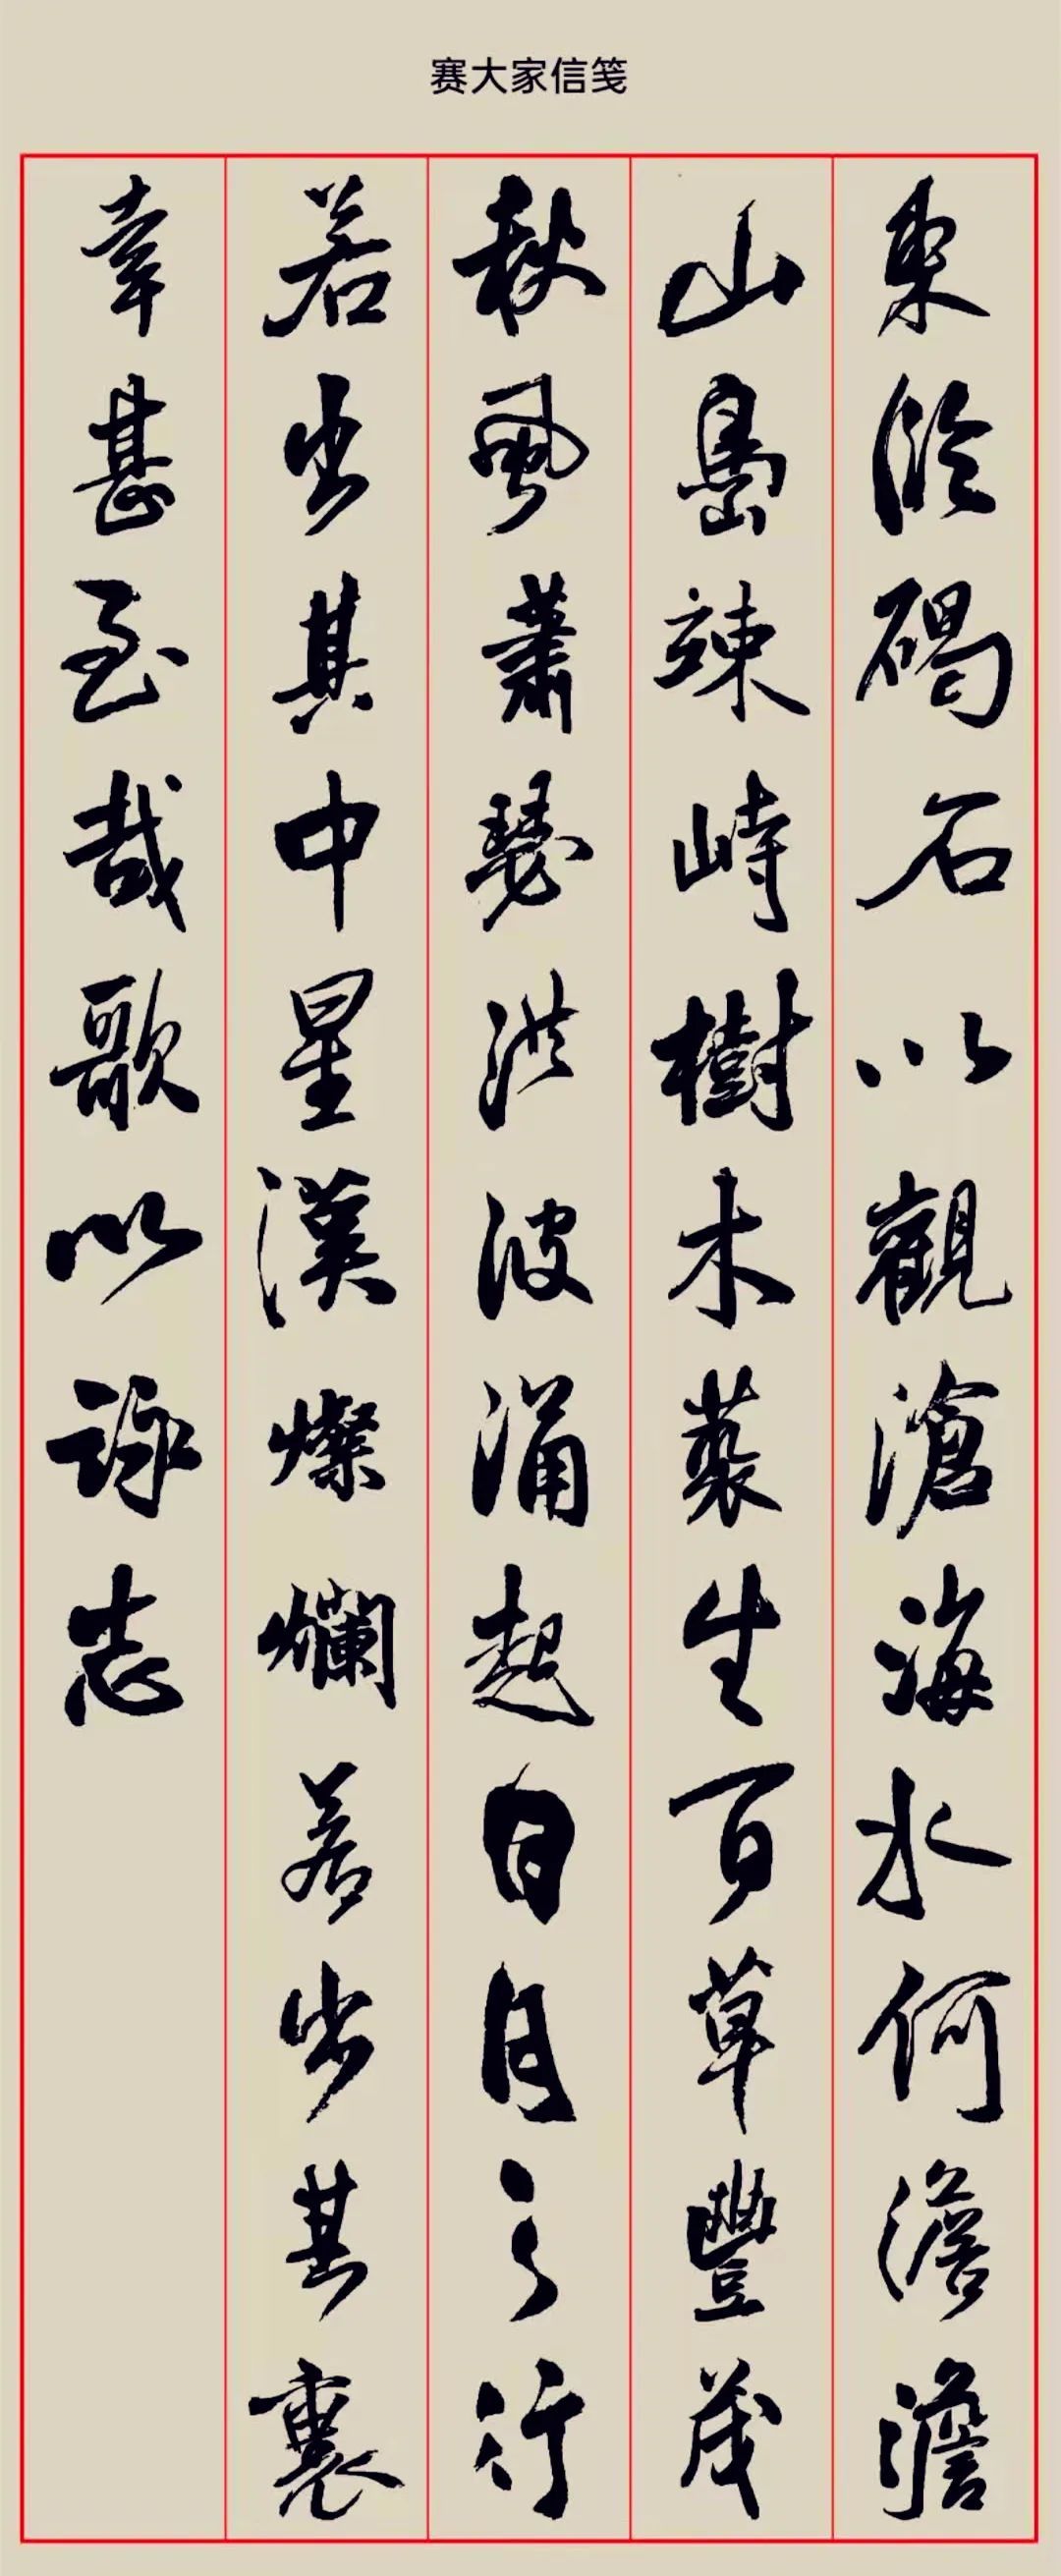 赛大家信笺
東臨碣石以觀滄海水何澹澹
山島竦峙樹木叢生百草豐茂
秋風蕭瑟洪波涌起日月之行
若出其中星漢燦爛若出其裏
幸甚至哉歌以詠志